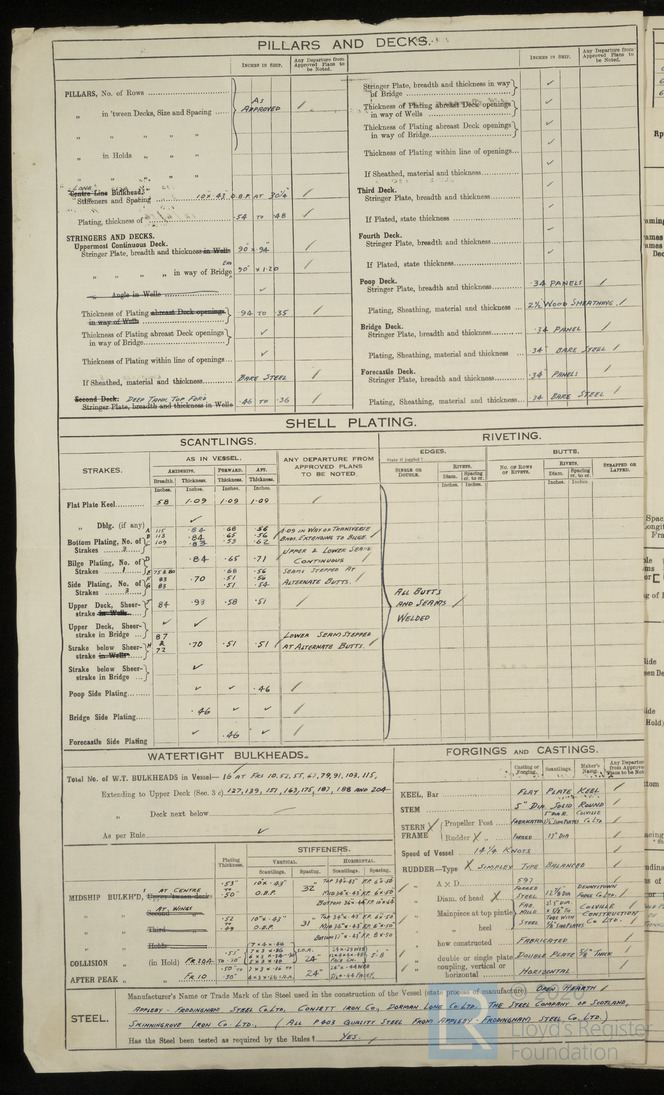 PILLARS AND DECKS.
INCHES IN SHIP.
Any Departure from Approved Plans to be Noted.
PILLARS, No. of Rows
AS APPROVED
„ in 'tween Decks, Size and Spacing
„ „ „ „
„ in Holds „ „
„ „ „ „
Centre Line Bulkhead.
Stiffeners and Spacing 10 x .43 O.B.P. AT 30¼"
Plating, thickness of .54 TO .48
STRINGERS AND DECKS.
Uppermost Continuous Deck.
Stringer Plate, breadth and thickness in Wells 90 x .94
„ „ „ „ in way of Bridge 90" x 1.20
Angle in Wells
Thickness of Plating abreast Deck openings in way of Wells .94 TO .35
Thickness of Plating abreast Deck openings in way of Bridge
Thickness of Plating within line of openings
If Sheathed, material and thickness BARE STEEL
Second Deck. DEEP TANK TOP FORD
Stringer Plate, breadth and thickness in Wells .46 TO .36
INCHES IN SHIP.
Any Departure from Approved Plans to be Noted.
Stringer Plate, breadth and thickness in way of Bridge
Thickness of Plating abreast Deck openings in way of Wells
Thickness of Plating abreast Deck openings in way of Bridge
Thickness of Plating within line of openings
If Sheathed, material and thickness
Third Deck.
Stringer Plate, breadth and thickness
If Plated, state thickness
Fourth Deck.
Stringer Plate, breadth and thickness
If Plated, state thickness
Poop Deck.
Stringer Plate, breadth and thickness .34 PANELS
Plating, Sheathing, material and thickness 2½ WOOD SHEATHING
Bridge Deck.
Stringer Plate, breadth and thickness .34 PANEL
Plating, Sheathing, material and thickness .34" BARE STEEL
Forecastle Deck.
Stringer Plate, breadth and thickness .34" PANELS
Plating, Sheathing, material and thickness .34 BARE STEEL
SHELL PLATING.
SCANTLINGS.
STRAKES.
AS IN VESSEL.
AMIDSHIPS. FORWARD. AFT.
Breadth. Thickness. Thickness. Thickness.
Inches. Inches. Inches. Inches.
ANY DEPARTURE FROM APPROVED PLANS TO BE NOTED
Flat Plate Keel 58 1.09 1.09 1.09
„ Dblg. (if any)
Bottom Plating, No. of Strakes 3
A 115 .84 .68 .56
B 113 .84 .65 .56
C 109 .83 .53 .62
1.09 IN WAY OF TRANSVERSE BHDS. EXTENDING TO BILGE
Bilge Plating, No. of Strakes 1 D .84 .65 .71
UPPER & LOWER SEAM CONTINUOUS
Side Plating, No. of Strakes 3
E 75 & 80 .68 .56
F 83 .70 .51 .56
G 83 .51 .54
SEAMS STEPPED AT ALTERNATE BUTTS.
Upper Deck, Sheer-strake in Wells 84 .93 .58 .51
Upper Deck, Sheer-strake in Bridge
Strake below Sheer-strake in Wells H 87 & 72 .70 .51 .51
LOWER SEAM STEPPED AT ALTERNATE BUTTS.
Strake below Sheer-strake in Bridge
Poop Side Plating .46
Bridge Side Plating .46
Forecastle Side Plating .46
RIVETING.
EDGES.
SINGLE OR DOUBLE.
RIVETS.
Diam. Spacing cr. to cr.
Inches. Inches.
BUTTS.
NO. OF ROWS OF RIVETS.
RIVETS.
Diam. Spacing cr. to cr.
Inches. Inches.
STRAPPED OR LAPPED.
ALL BUTTS
AND SEAMS
WELDED
WATERTIGHT BULKHEADS.
Total No. of W.T. BULKHEADS in Vessel— 16 AT FRS 10, 52, 55, 67, 79, 91, 103, 115,
Extending to Upper Deck (Sec. 3 c) 127, 139, 151, 163, 175, 187, 188 AND 204
„ Deck next below
As per Rule
Plating Thickness.
STIFFENERS.
VERTICAL HORIZONTAL
Scantlings. Spacing. Scantlings. Spacing.
MIDSHIP BULKH'D, Upper 'tween deck AT CENTRE .53" TO .50" 10" x .43" O.B.P. 32"
„ Second „ AT WINGS .52 TO .49 10" x .43" O.B.P. 31"
„ Third „
„ Holds „
COLLISION „ (in Hold) FR. 204 24" 5'-8"
AFTER PEAK „ FR 10 24"
FORGINGS AND CASTINGS.
Casting or Forging. Scantlings. Maker's Name. Any Departure from Approved Plans to be Noted
KEEL, Bar FLAT PLATE KEEL
STEM 5" DIA SOLID ROUND
STERN FRAME Propeller Post FABRICATED COLVILLE CO LTD
Rudder „ FORGED 13" DIA
Speed of Vessel 14¼ KNOTS
RUDDER—Type SIMPLEX TYPE BALANCED
„ A x D 597
„ Diam. of head FORGED STEEL 12⅞ DIA DENNYSTOWN FORGE CO. LTD.
„ Mainpiece at top pintle FAB. MILD STEEL COLVILLE CONSTRUCTION CO LTD.
„ „ heel
„ how constructed FABRICATED
„ double or single plate DOUBLE PLATE ⅝" THICK
„ coupling, vertical or horizontal HORIZONTAL
STEEL.
Manufacturer's Name or Trade Mark of the Steel used in the construction of the Vessel (state process of manufacture) OPEN HEARTH
APPLEBY - FRODINGHAM STEEL CO. LTD, CONSETT IRON CO, DORMAN LONG CO. LTD. THE STEEL COMPANY OF SCOTLAND,
SKINNINGROVE IRON CO. LTD., (ALL P403 QUALITY STEEL FROM APPLEBY - FRODINGHAM STEEL CO. LTD.)
Has the Steel been tested as required by the Rules? YES.
© 2020
Lloyd's Register
Foundation